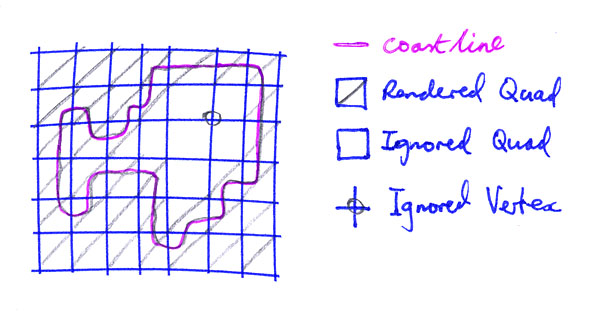 coastline
Rendered Quad
Ignored Quad
Ignored Vertex